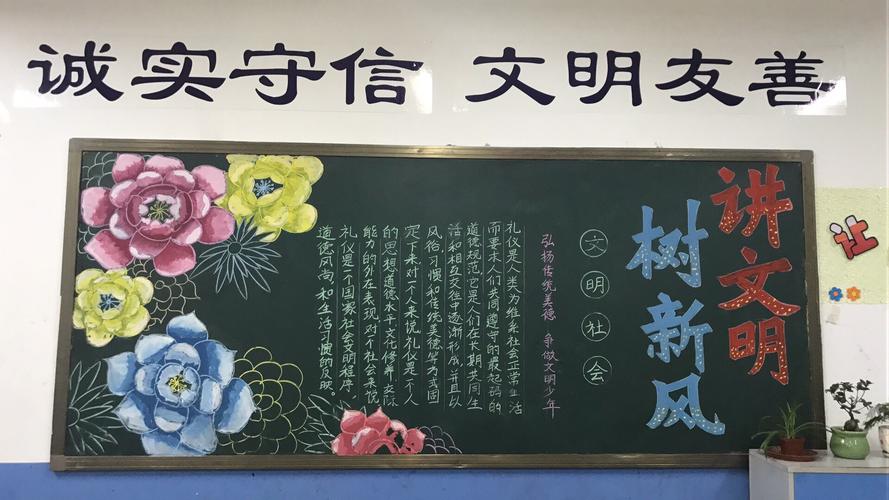 诚实守信 文明友善
讲文明
树新风
文明社会
弘扬传统美德 争做文明少年
礼仪是人类为维系社会正常生活
而要求人们共同遵守的最起码的
道德规范,它是人们在长期共同生
活和相互交往中逐渐形成,并且以
风俗、习惯和传统美德等方式固
定下来,对一个人来说,礼仪是一个人
的思想道德水平,文化修养,交际
能力的外在表现,对个社会来说
礼仪是一个国家社会文明程序,
道德风尚和生活习惯的反映。
让